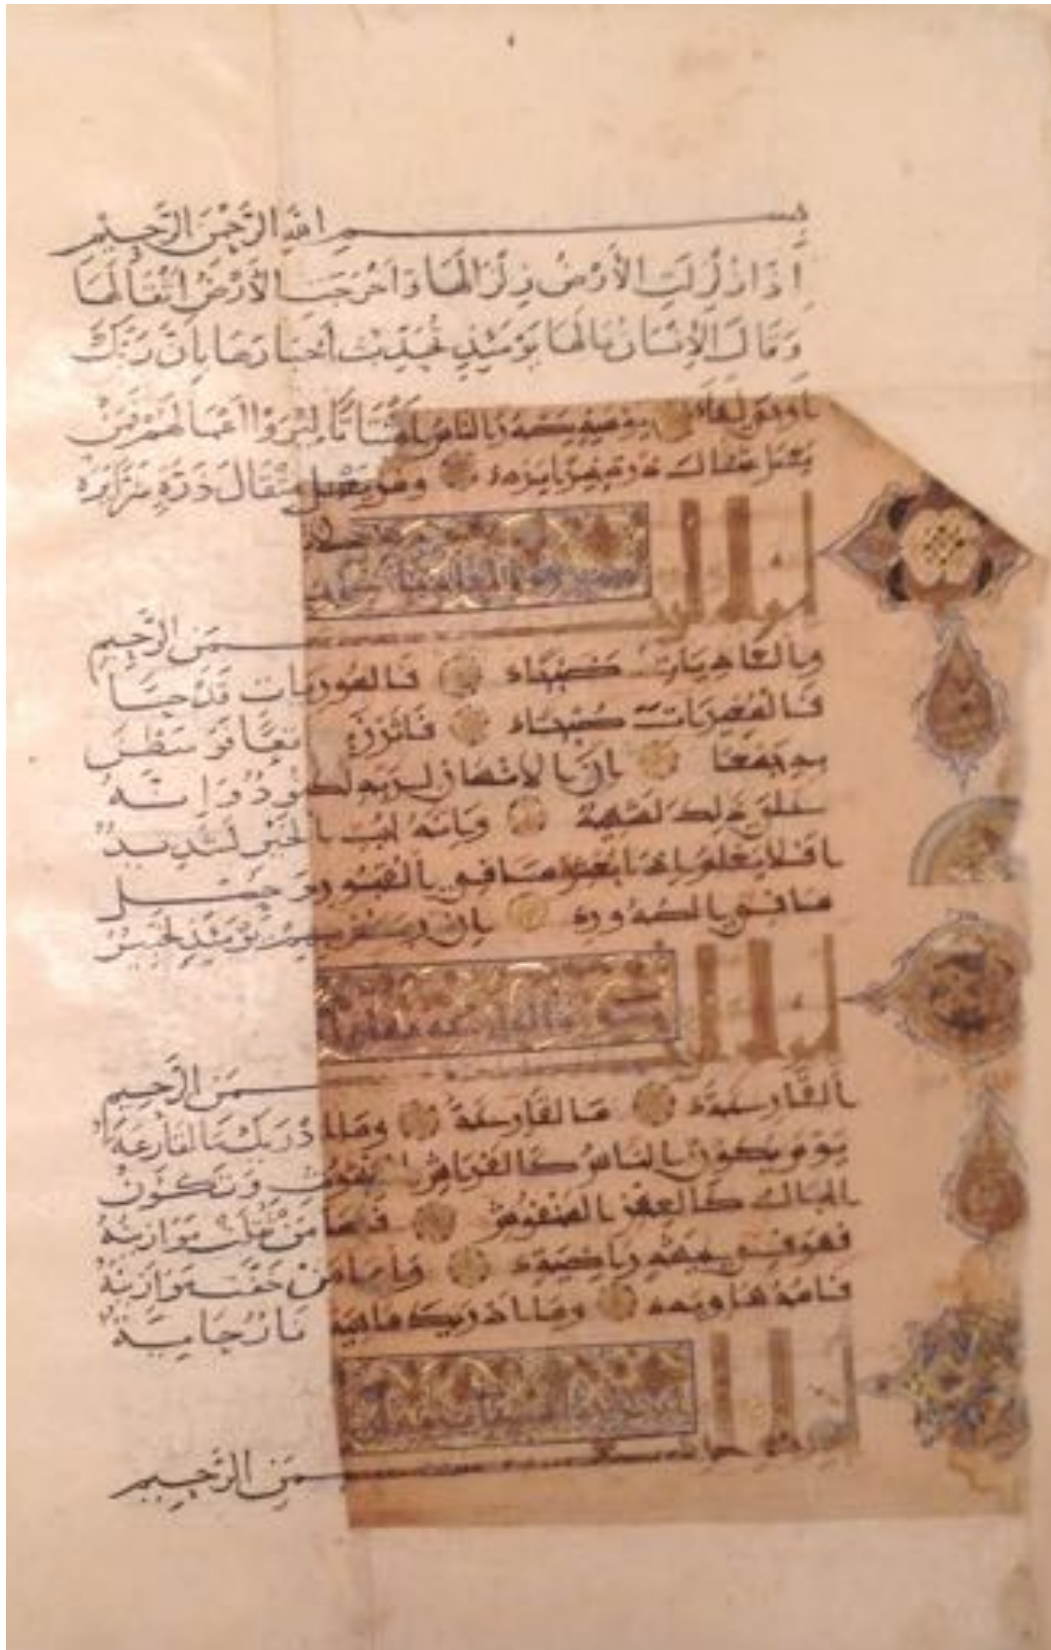 بسم الله الرحمن الرحيم
إذا زلزلت الأرض زلزالها وأخرجت الأرض أثقالها
وقال الإنسان مالها يومئذ تحدث أخبارها بأن ربك
أوحى لها يومئذ يصدر الناس أشتاتا ليروا أعمالهم فمن
يعمل مثقال ذرة خيرا يره ومن يعمل مثقال ذرة شرا يره
سورة العاديات
من الرحيم
والعاديات ضبحا فالموريات قدحا
فالمغيرات صبحا فأثرن به نقعا فوسطن
به جمعا إن الإنسان لربه لكنود وإنه
على ذلك لشهيد وإنه لحب الخير لشديد
أفلا يعلم إذا بعثر ما في القبور وحصل
ما في الصدور إن ربهم بهم يومئذ لخبير
القارعة
من الرحيم
القارعة ما القارعة وما أدريك ما القارعة
يوم يكون الناس كالفراش المبثوث وتكون
الجبال كالعهن المنفوش فأما من ثقلت موازينه
فهو في عيشة راضية وأما من خفت موازينه
فأمه هاوية وما أدريك ماهيه نار حامية
من الرحيم